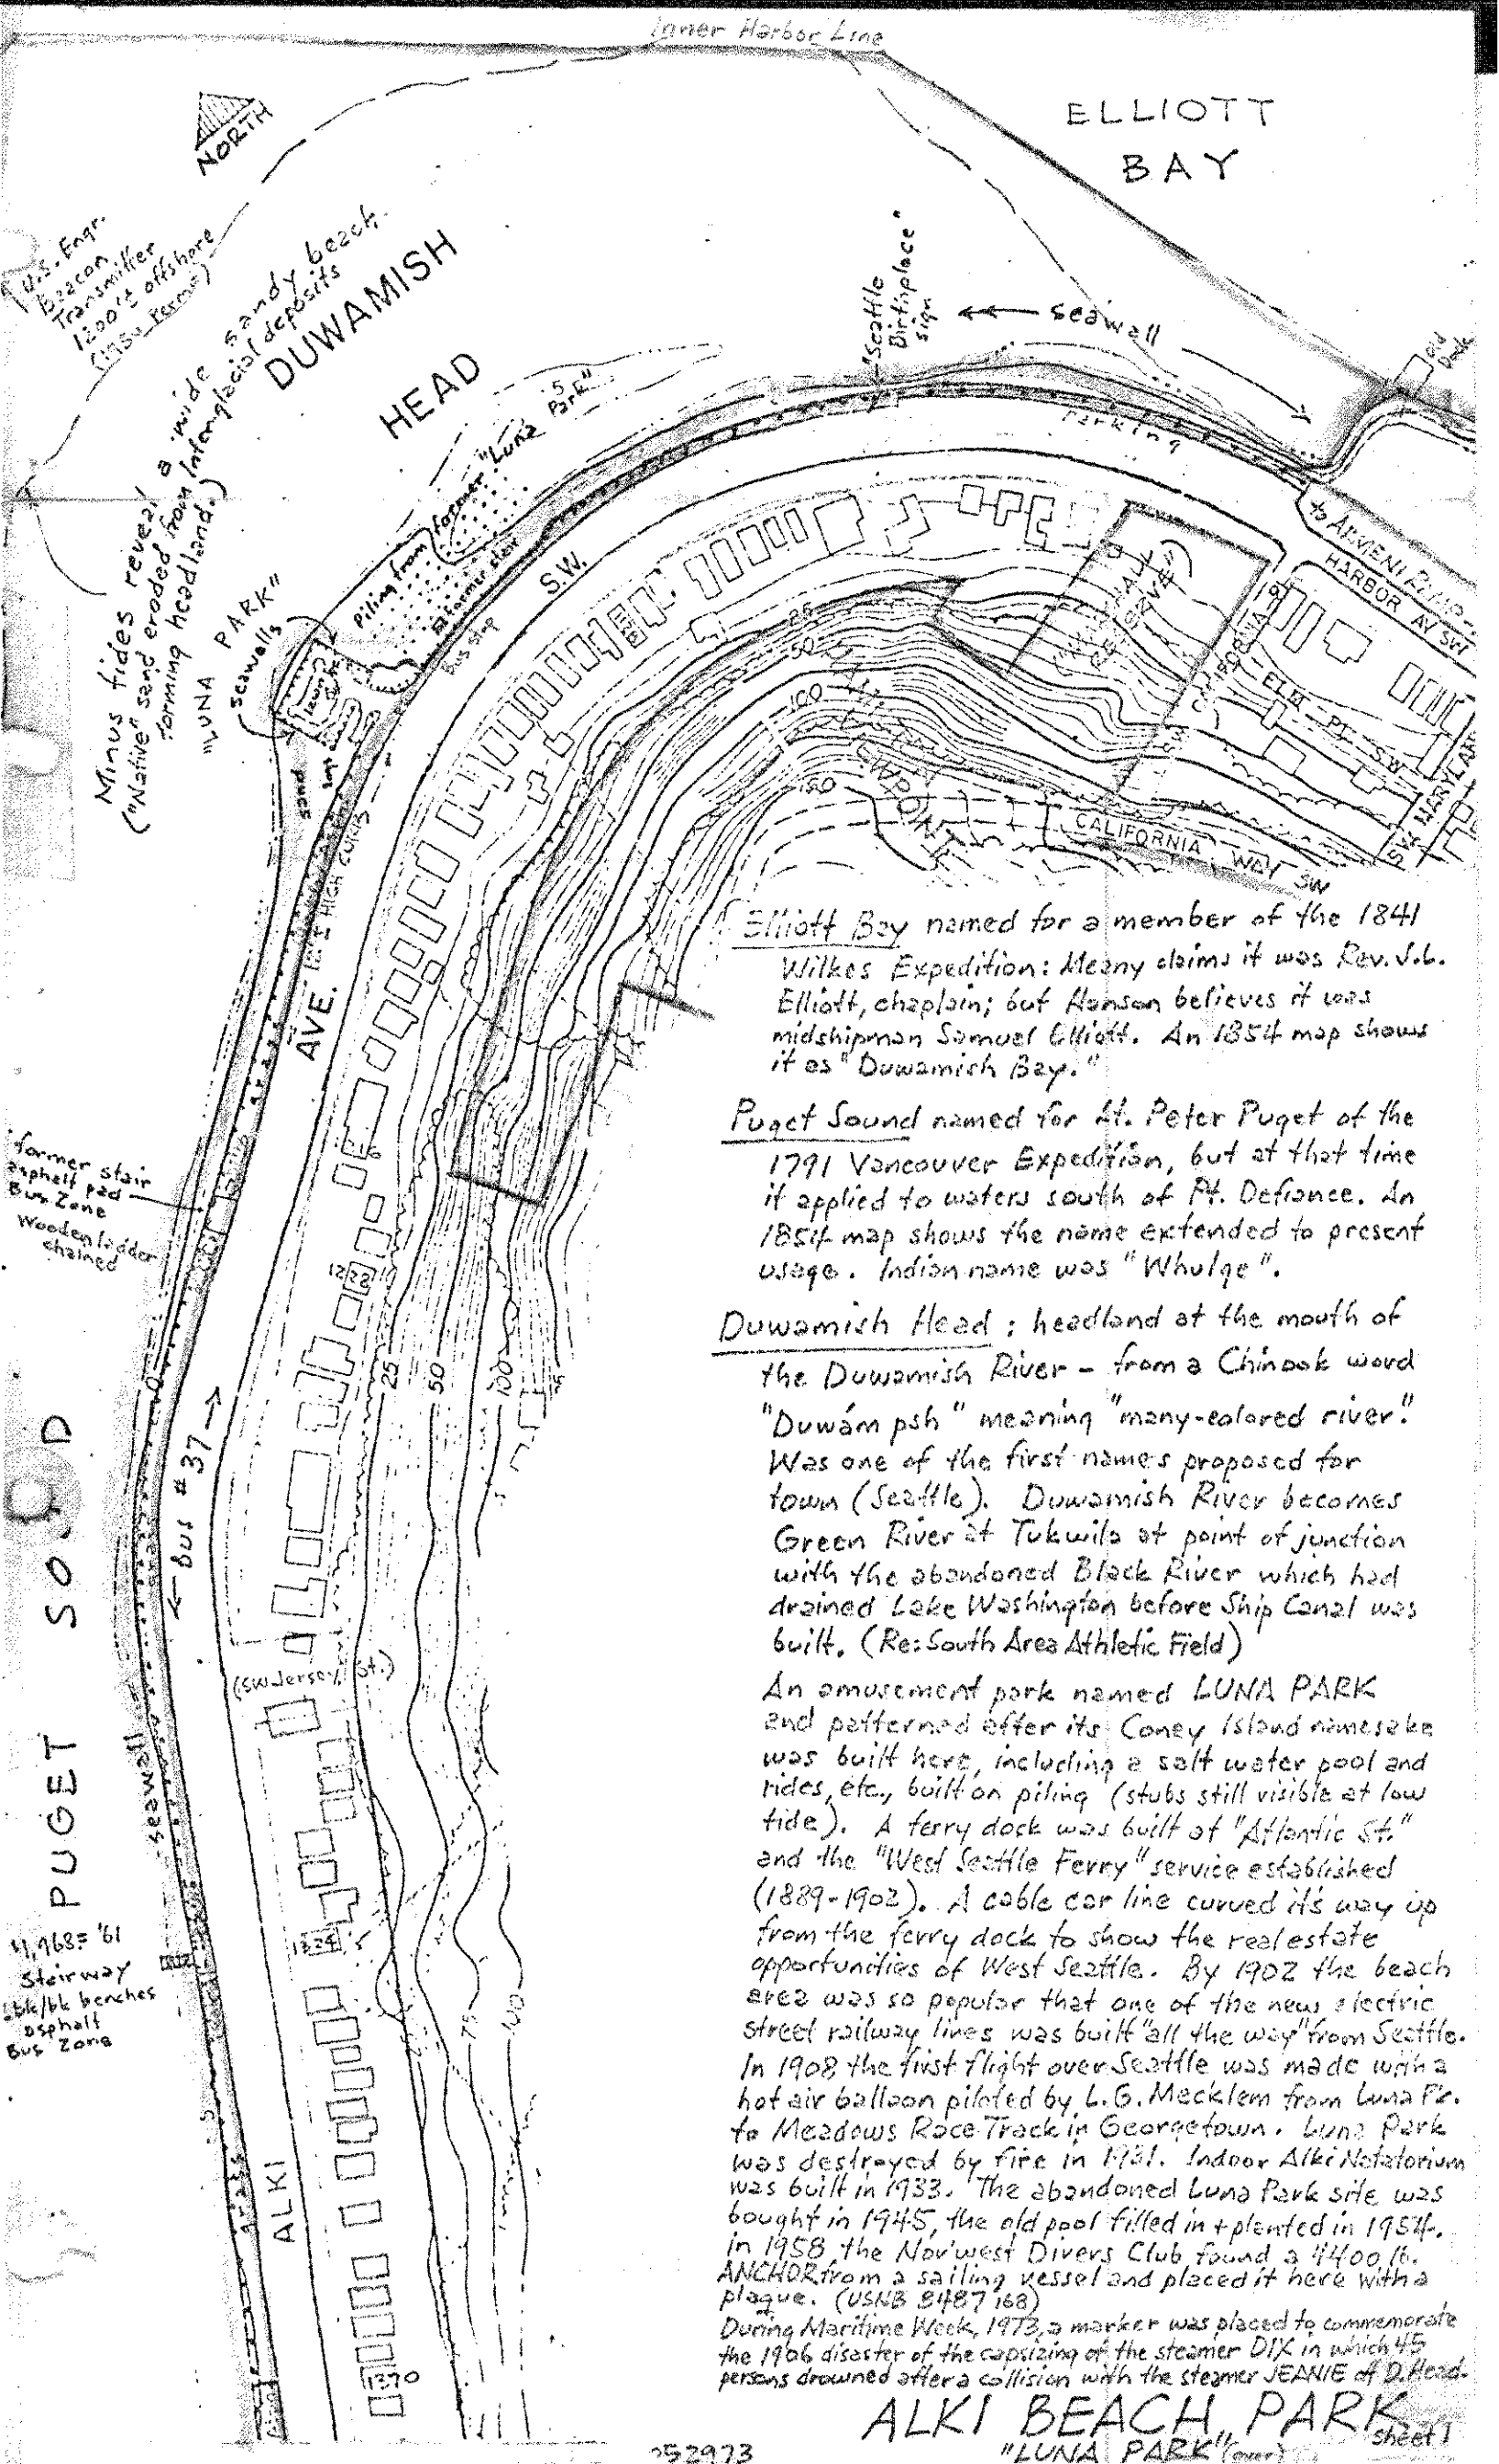 Inner Harbor Line
ELLIOTT
BAY
NORTH
U.S. Engr.
Beacon
Transmitter
1200' offshore
Minus tides reveal a wide sandy beach.
("Native" sand eroded from Interglacial deposits
forming headland.)
DUWAMISH
HEAD
"Seattle
Birthplace"
sign
seawall
Old
Dock
Parking
Piling from former "Luna Park"
"LUNA PARK"
seawalls
former stair
Bus stop
S.W.
to ARMENI
HARBOR AV SW
ELM PL SW
SW MARYLAND
25
50
100
150
VIEWPOINT
CALIFORNIA WAY SW
HIGH CURBS
AVE.
former stair
asphalt pad
Bus Zone
Wooden ladder
chained
1222
25
50
100
Bus #37
(SW Jersey St.)
PUGET
seawall
'61
Stairway
bk/bk benches
asphalt
Bus Zone
75
100
ALKI
1370
Elliott Bay named for a member of the 1841
Wilkes Expedition: Meany claims it was Rev. J.L.
Elliott, chaplain; but Hanson believes it was
midshipman Samuel Elliott. An 1854 map shows
it as "Duwamish Bay."
Puget Sound named for Lt. Peter Puget of the
1791 Vancouver Expedition, but at that time
it applied to waters south of Pt. Defiance. An
1854 map shows the name extended to present
usage. Indian name was "Whulge".
Duwamish Head: headland at the mouth of
the Duwamish River - from a Chinook word
"Duwám psh" meaning "many-colored river."
Was one of the first names proposed for
town (Seattle). Duwamish River becomes
Green River at Tukwila at point of junction
with the abandoned Black River which had
drained Lake Washington before Ship Canal was
built. (Re: South Area Athletic Field)
An amusement park named LUNA PARK
and patterned after its Coney Island namesake
was built here, including a salt water pool and
rides, etc., built on piling (stubs still visible at low
tide). A ferry dock was built at "Atlantic St."
and the "West Seattle Ferry" service established
(1889-1902). A cable car line curved its way up
from the ferry dock to show the real estate
opportunities of West Seattle. By 1902 the beach
area was so popular that one of the new electric
street railway lines was built "all the way" from Seattle.
In 1908 the first flight over Seattle was made with a
hot air balloon piloted by L.G. Mecklem from Luna Pk.
to Meadows Race Track in Georgetown. Luna Park
was destroyed by fire in 1931. Indoor Alki Natatorium
was built in 1933. The abandoned Luna Park site was
bought in 1945, the old pool filled in + planted in 1954.
in 1958 the Nor'west Divers Club found a 4400 lb.
ANCHOR from a sailing vessel and placed it here with a
plaque. (USNB 8487 '68)
During Maritime Week, 1973, a marker was placed to commemorate
the 1906 disaster of the capsizing of the steamer DIX in which 45
persons drowned after a collision with the steamer JEANIE off D. Head.
ALKI BEACH PARK
sheet 1
"LUNA PARK" (over)
52973